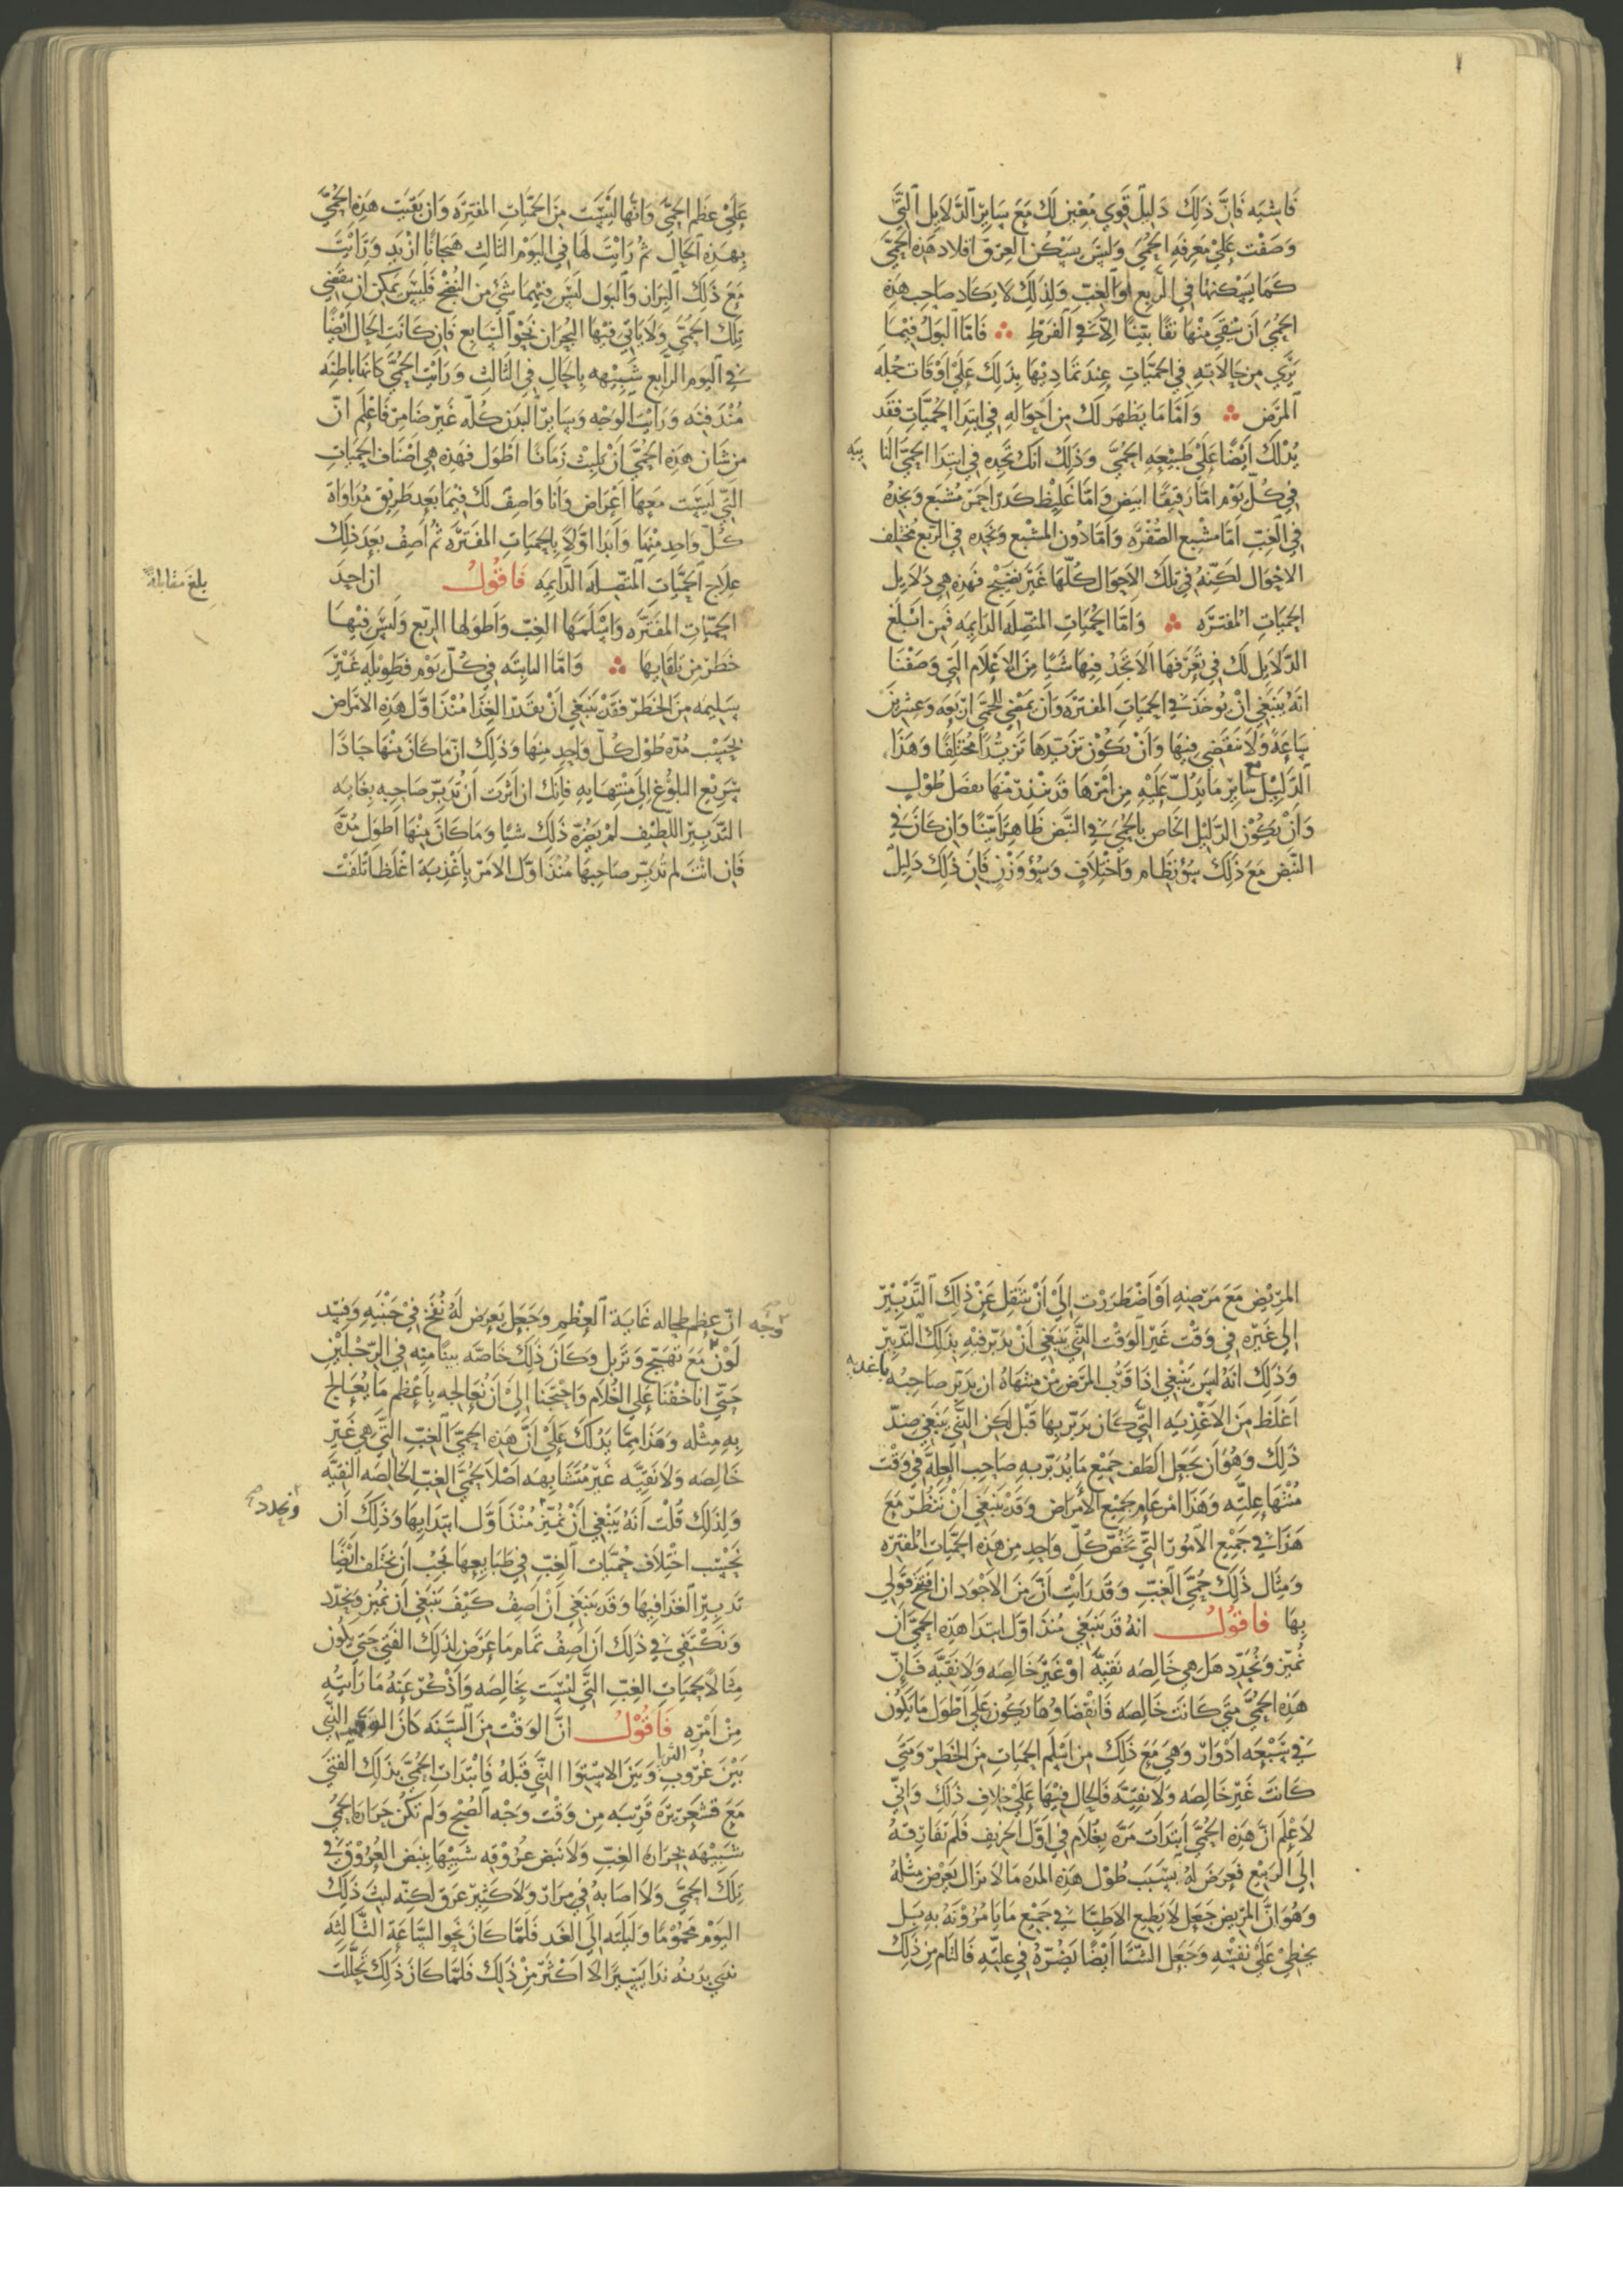 فاشبه فان ذلك دليل قوي معين لك مع سائر الدلايل التي
وصفت علي معرفه الحمي وليس يسكن العرق اقلاد هذه الحمي
كما يسكنها في الربع او الغب ولذلك لا يكاد صاحب هذه
الحمي ان ينقي منها نقا بينا الا في الفرط ∴ فاما البول فيما
تري من حالاته في الحميات عند تماديها بذلك علي اوقات جمله
المرض ∴ واما ما يظهر لك من احواله في ابتدا الحميات فقد
يدلك ايضا علي طبيعه الحمي وذلك انك تجده في ابتدا الحمي النا يبه
في كل يوم اما رقيقا ابيض واما غليظ كدر احمر مشبع وتجده
في الغب اما مشبع الصفره واما دون المشبع وتجده في الربع مختلف
الاحوال لكنه في تلك الاحوال كلها غير نضيج فهذه هي دلايل
الحميات المفتره ∴ واما الحميات المتصله الدايمه فمن ابلغ
الدلايل لك في تعرفها الا تجد فيها شيا من الاعلام التي وصفنا
انه ينبغي ان يوخذ في الحميات المفتره وان يمضي للحمي اربعه وعشرين
ساعه ولا تنقضي فيها وان يكون تزيدها تزيدا مختلفا وهذا
الدليل مع ساير ما يدل عليه من امرها قد ينذر منها بفضل طول
وان يكون الدليل الخاص بالحمي في النبض ظاهرا بينا وان كان في
النبض مع ذلك سؤ نظام واختلاف وسؤ وزن فان ذلك دليل
علي عظم الحمي وانها ليست من الحميات المفتره وان بقيت هذه الحمي
بهذه الحال ثم رايت لها في اليوم الثالث هيجانا ازيد ورايت
مع ذلك البراز والبول ليس فيهما شي من النضج فليس يمكن ان ينقضي
تلك الحمي ولا ياتي فيها البحران نحو السابع فان كانت الحال ايضا
في اليوم الرابع شبيهه بالحال في الثالث ورايت الحمي كانها باطنه
مندفنه ورايت الوجه وساير البدن كله غير ضامر فاعلم ان
من شان هذه الحمي ان يلبث زمانا اطول فهذه هي اصناف الحميات
التي ليست معها اعراض وانا واصف لك فيما بعد طريق مداواة
كل واحد منها وابدا اولا بالحميات المفتره ثم اصف بعد ذلك
علاج الحميات المتصله الدايمه فاقول ان احد
بلغ مقابلة
الحميات المفتره واسلمها الغب واطولها الربع وليس فيها
خطر من تلقايها ∴ واما النايبه في كل يوم فطويله غير
سليمه من الخطر فقد ينبغي ان يقدر الغذا منذ اول هذه الامراض
بحسب مده طول كل واحد منها وذلك ان ما كان منها حادا
سريع البلوغ الي منتهايه فانك ان اثرت ان تدبر صاحبه بغايه
التدبير اللطيف لم يضره ذلك شيا وما كان منها اطول مدة
فان انت لم تدبر صاحبها منذ اول الامر باغذية اغلظ اتلفت
المريض مع مرضه او اضطررت الي ان تنتقل عن ذلك التدبير
الي غيره في وقت غير الوقت الذي ينبغي ان يدبر فيه بذلك التدبير
وذلك انه ليس ينبغي اذا قرب المرض من منتهاه ان يدبر صاحبه باغديه
اغلظ من الاغذيه التي كان يدبر بها قبل لكن الذي ينبغي ضد
ذلك وهو ان يجعل الطف جميع ما يدبر به صاحب العله في وقت
منتها علته وهذا امر عام جميع الامراض وقد ينبغي ان تنظر مع
هذا في جميع الامور التي تخص كل واحد من هذه الحميات المفتره
ومثال ذلك حمي الغب وقد رايت ان من الاجود ان افتتح قولي
بها فاقول انه قد ينبغي منذ اول ابتدا هذه الحمي ان
نميز ونحدد هل هي خالصه نقيه او غير خالصه ولا نقيه فان
هذه الحمي متي كانت خالصه فانقضاوها يكون علي اطول ما يكون
في سبعه ادوار وهي مع ذلك من اسلم الحميات من الخطر ومتي
كانت غير خالصه ولا نقيه فالحال فيها علي خلاف ذلك واني
لاعلم ان هذه الحمي ابتدات مره بغلام في اول الخريف فلم تفارقه
الي الربيع فعرض له بسبب طول هذه المده ما لا يزال يعرض مثله
وهو ان المريض جعل لا يطيع الاطبا في جميع ما يامرونه به بل
يخطي علي نفسه وجعل الشتا ايضا يضره في علته فالتام من ذلك
ان عظم طحاله غاية العظم وجعل يعرض له نفخ في جنبيه وفسد
وجه
لون مع تهيج وتربل وكان ذلك خاصه بينا منه في الرجلين
حتي انا خفنا علي الغلام واحتجنا الي ان نعالجه باعظم ما يعالج
به مثله وهذا مما يدلك علي ان هذه الحمي الغب التي هي غير
خالصه ولا نقيه غير متشابهه اصلا لحمي الغب الخالصه النقيه
ولذلك قلت انه ينبغي ان نميز منذ اول ابتدايها وذلك ان
ونحدد
بحسب اختلاف حميات الغب في طبايعها يجب ان يختلف ايضا
تدبير الغذا فيها وقد ينبغي ان اصف كيف ينبغي ان نميز ونحدد
ونكتفي في ذلك ان اصف تمام ما عرض لذلك الفتي حتي يكون
مثالا لحميات الغب التي ليست بخالصه واذكر عنه ما رايته
من امره فاقول ان الوقت من السنه كان الوقت الذي
بين غروب الثريا وبين الاستوا الذي قبله فابتدات الحمي بذلك الفتي
مع قشعريره قريبه من وقت وجه الصبح ولم تكن حراره الحمي
شبيهه بحراره الغب ولا نبض عروقه شبيها بنبض العروق في
تلك الحمي ولا اصابه في مرار ولا كثير عرق لكنه لبث ذلك
اليوم محموما وليلته الي الغد فلما كان نحو الساعة الثالثه
ندي بدنه ندا يسيرا لا اكثر من ذلك فلما كان ذلك تحللت